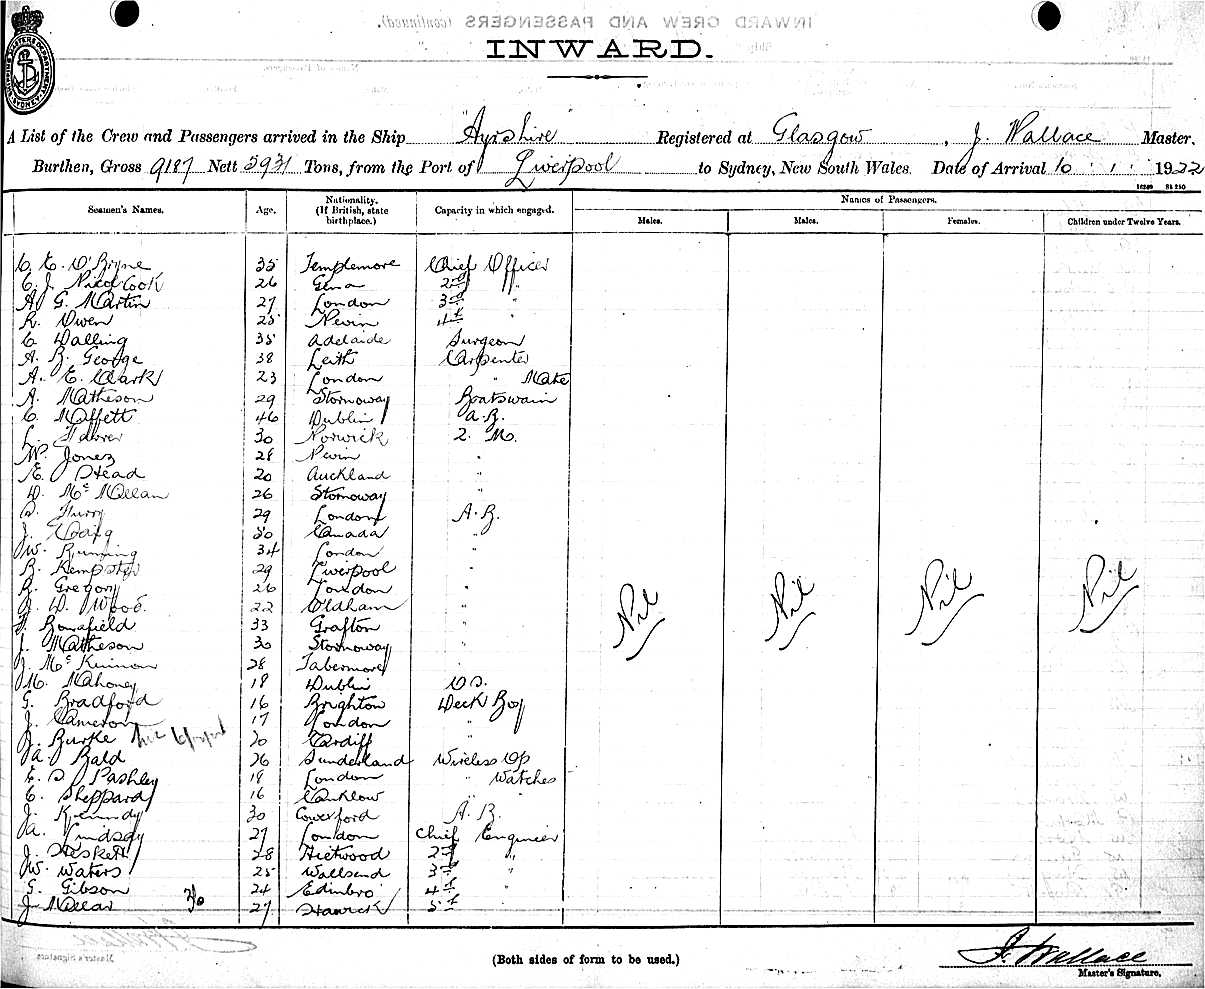 INWARD CREW AND PASSENGERS (continued).
INWARD.
A List of the Crew and Passengers arrived in the Ship "Ayrshire" Registered at Glasgow, J. Wallace Master,
Burthen, Gross 9187 Nett 5931 Tons, from the Port of Liverpool to Sydney, New South Wales. Date of Arrival 10 . 1 . 1922
Seamen's Names. Age. Nationality. (If British, state birthplace.) Capacity in which engaged. Names of Passengers.
Males. Males. Females. Children under Twelve Years.
C. E. O'Bryne 35 Templemore Chief Officer
C. J. Cook 26 2nd "
A. G. Martin 27 London 3rd "
R. Owen 25 Nevin 4th "
C. Walling 35 Adelaide Surgeon
A. B. George 38 Leith Carpenter
A. E. Clark 23 London " Mate
A. Matheson 29 Stornoway Boatswain
C. Moffett 46 Dublin A.B.
L. 30 Norwick Q. M.
W. Jones 28 Nevin "
E. Head 20 Auckland "
D. McMillan 26 Stornoway "
29 London A.B.
J. Craig 30 Canada "
W. Running 34 London "
R. Kempster 29 Liverpool "
R. Gregory 26 London "
D. Wood 22 Oldham "
Bousfield 33 Grafton "
J. Matheson 30 Stornoway "
J. McKinnon 28 Tabermory "
M. Mahoney 18 Dublin O.S.
G. Bradford 16 Brighton Deck Boy
J. Cameron 17 London "
J. Burke 20 Cardiff "
A. Bald 26 Sunderland Wireless Op
E. S. Pashley 18 London " Watches
C. Sheppard 16 " "
J. Kennedy 30 A.B.
A. Lindsay 27 London Chief Engineer
J. Heskett 28 2nd "
W. Waters 25 Wallsend 3rd "
G. Gibson 24 Edinbro' 4th "
J. Mellar 27 Hawick 5th
Nil Nil Nil Nil
(Both sides of form to be used.)
J. Wallace
Master's Signature.